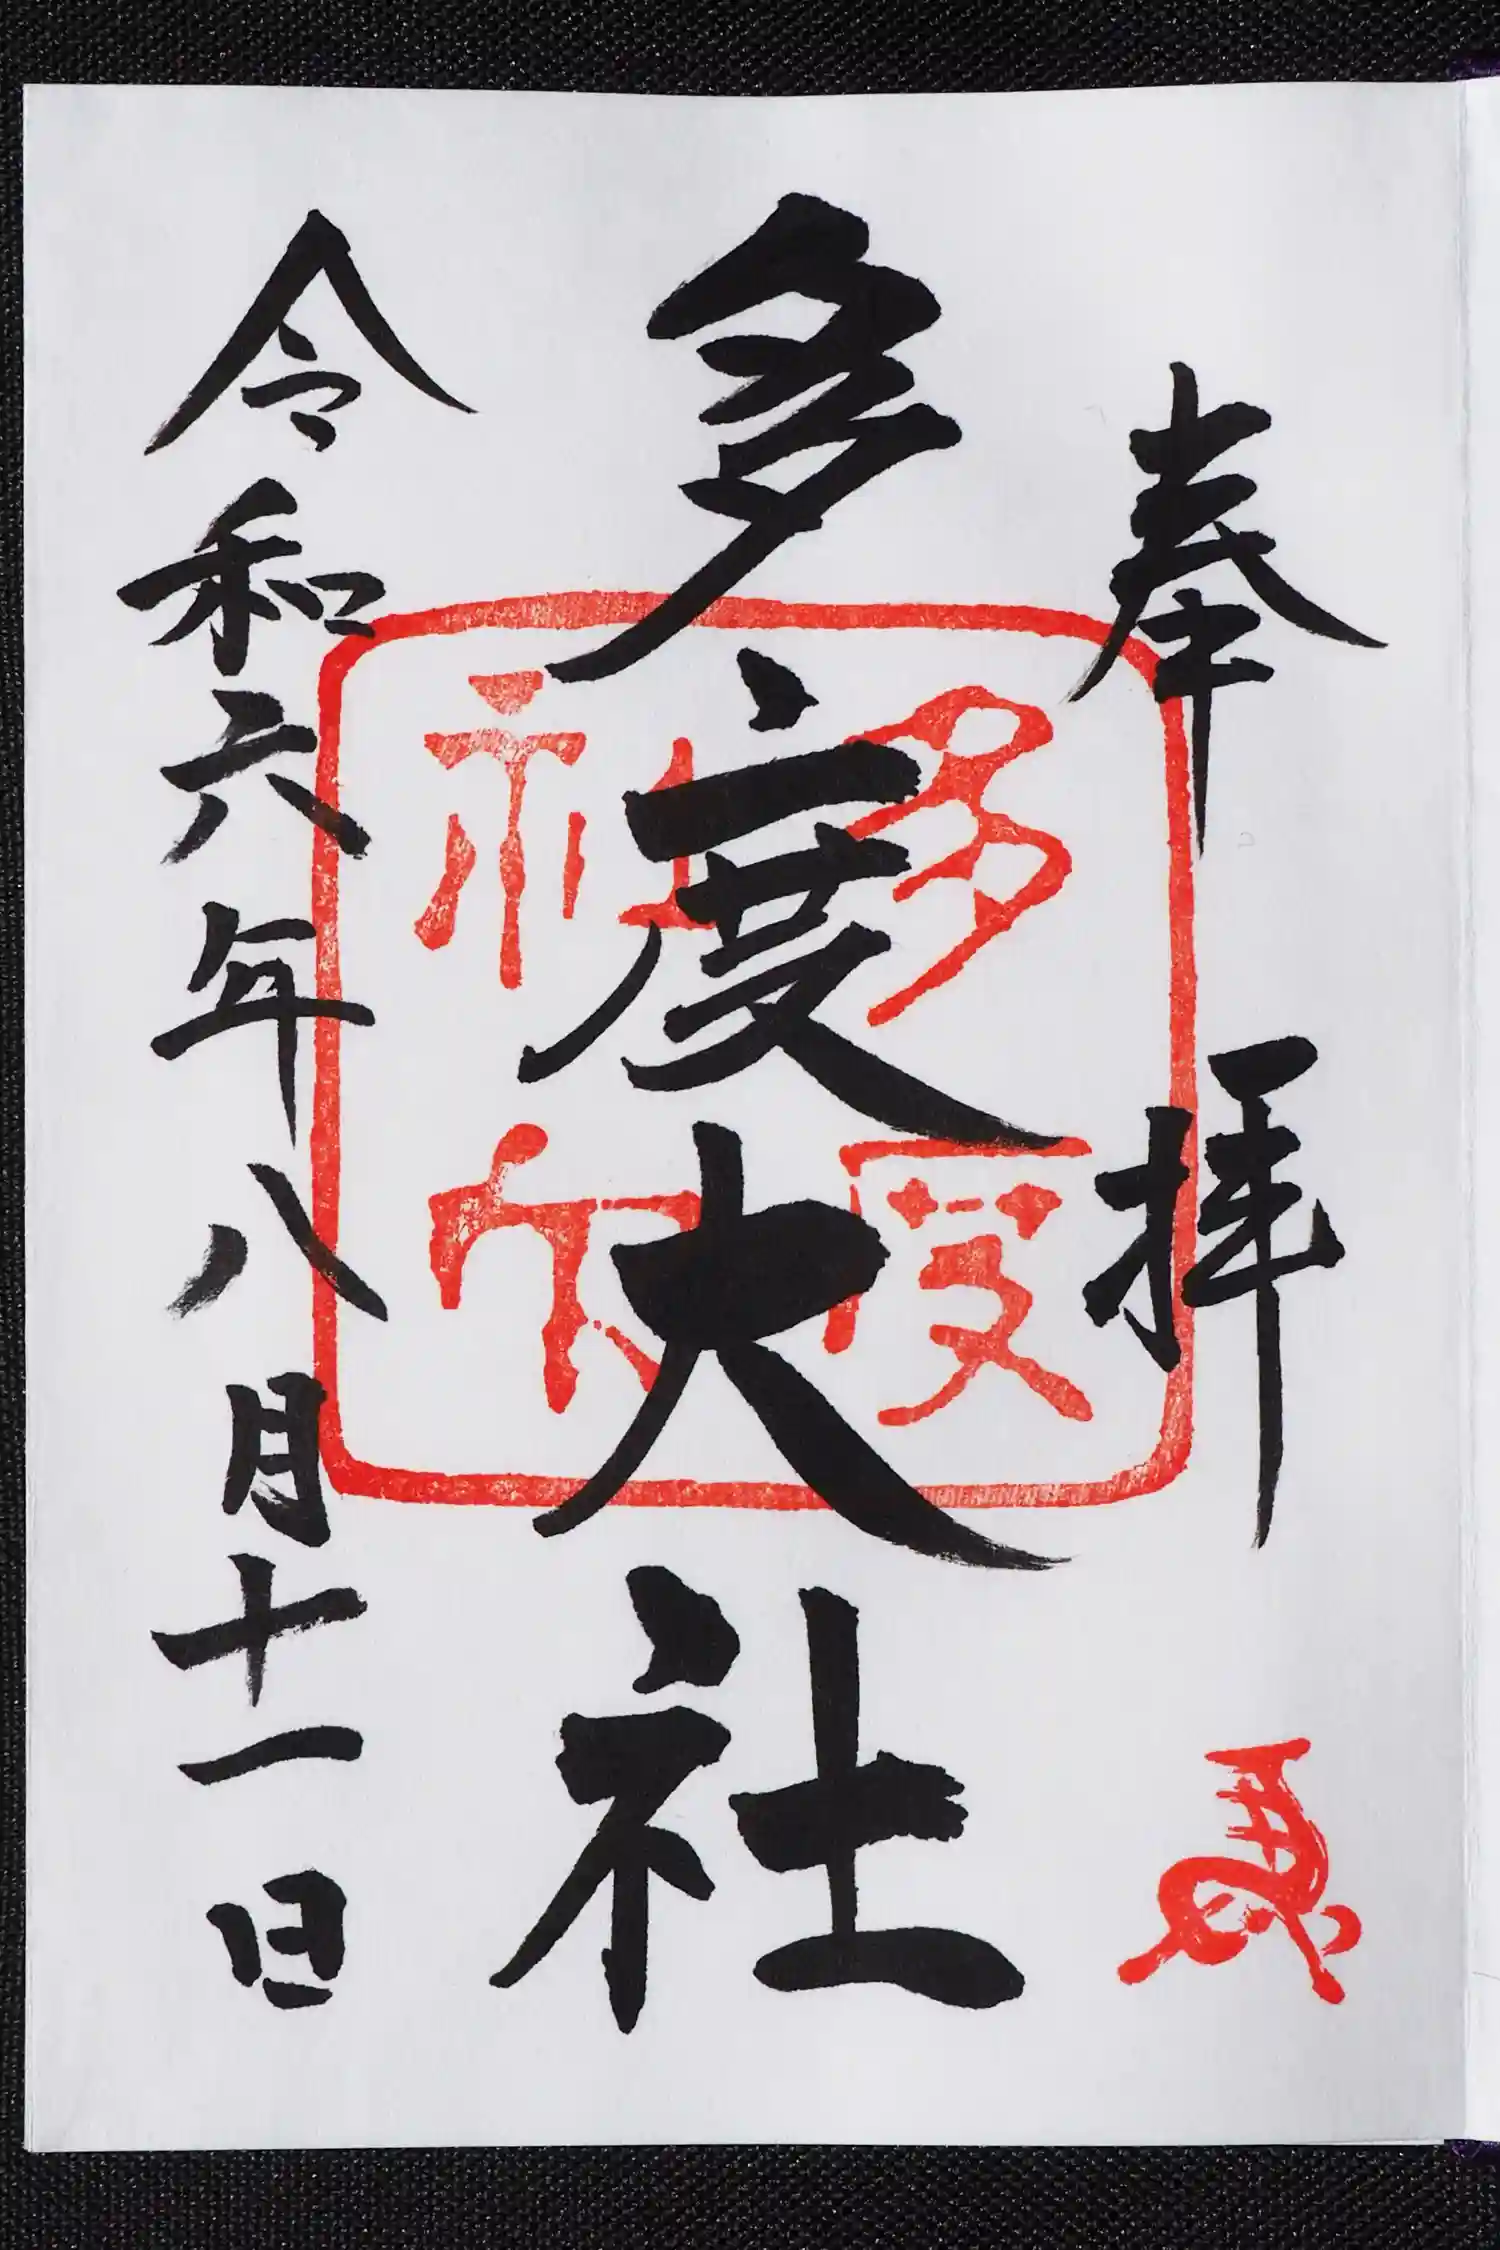 奉拝
多度大社
多度神印
令和六年八月十一日